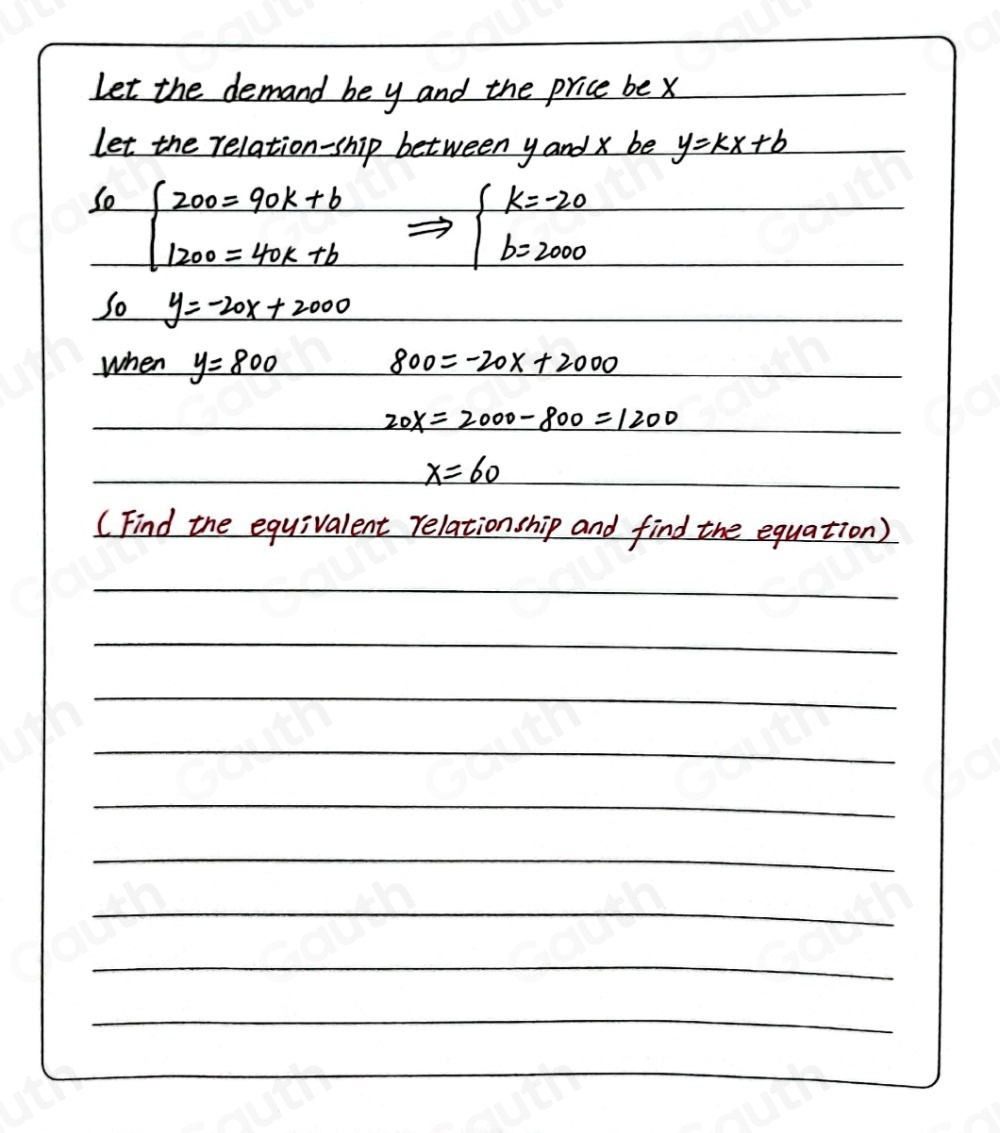 Let the demand be y and the price be x
Let the relation-ship between y and x be y=kx+b
So { 200=90k+b ⇒ { k=-20
1200=40k+b b=2000
So y=-20x+2000
When y=800 800=-20x+2000
20x=2000-800=1200
x=60
(Find the equivalent relationship and find the equation)